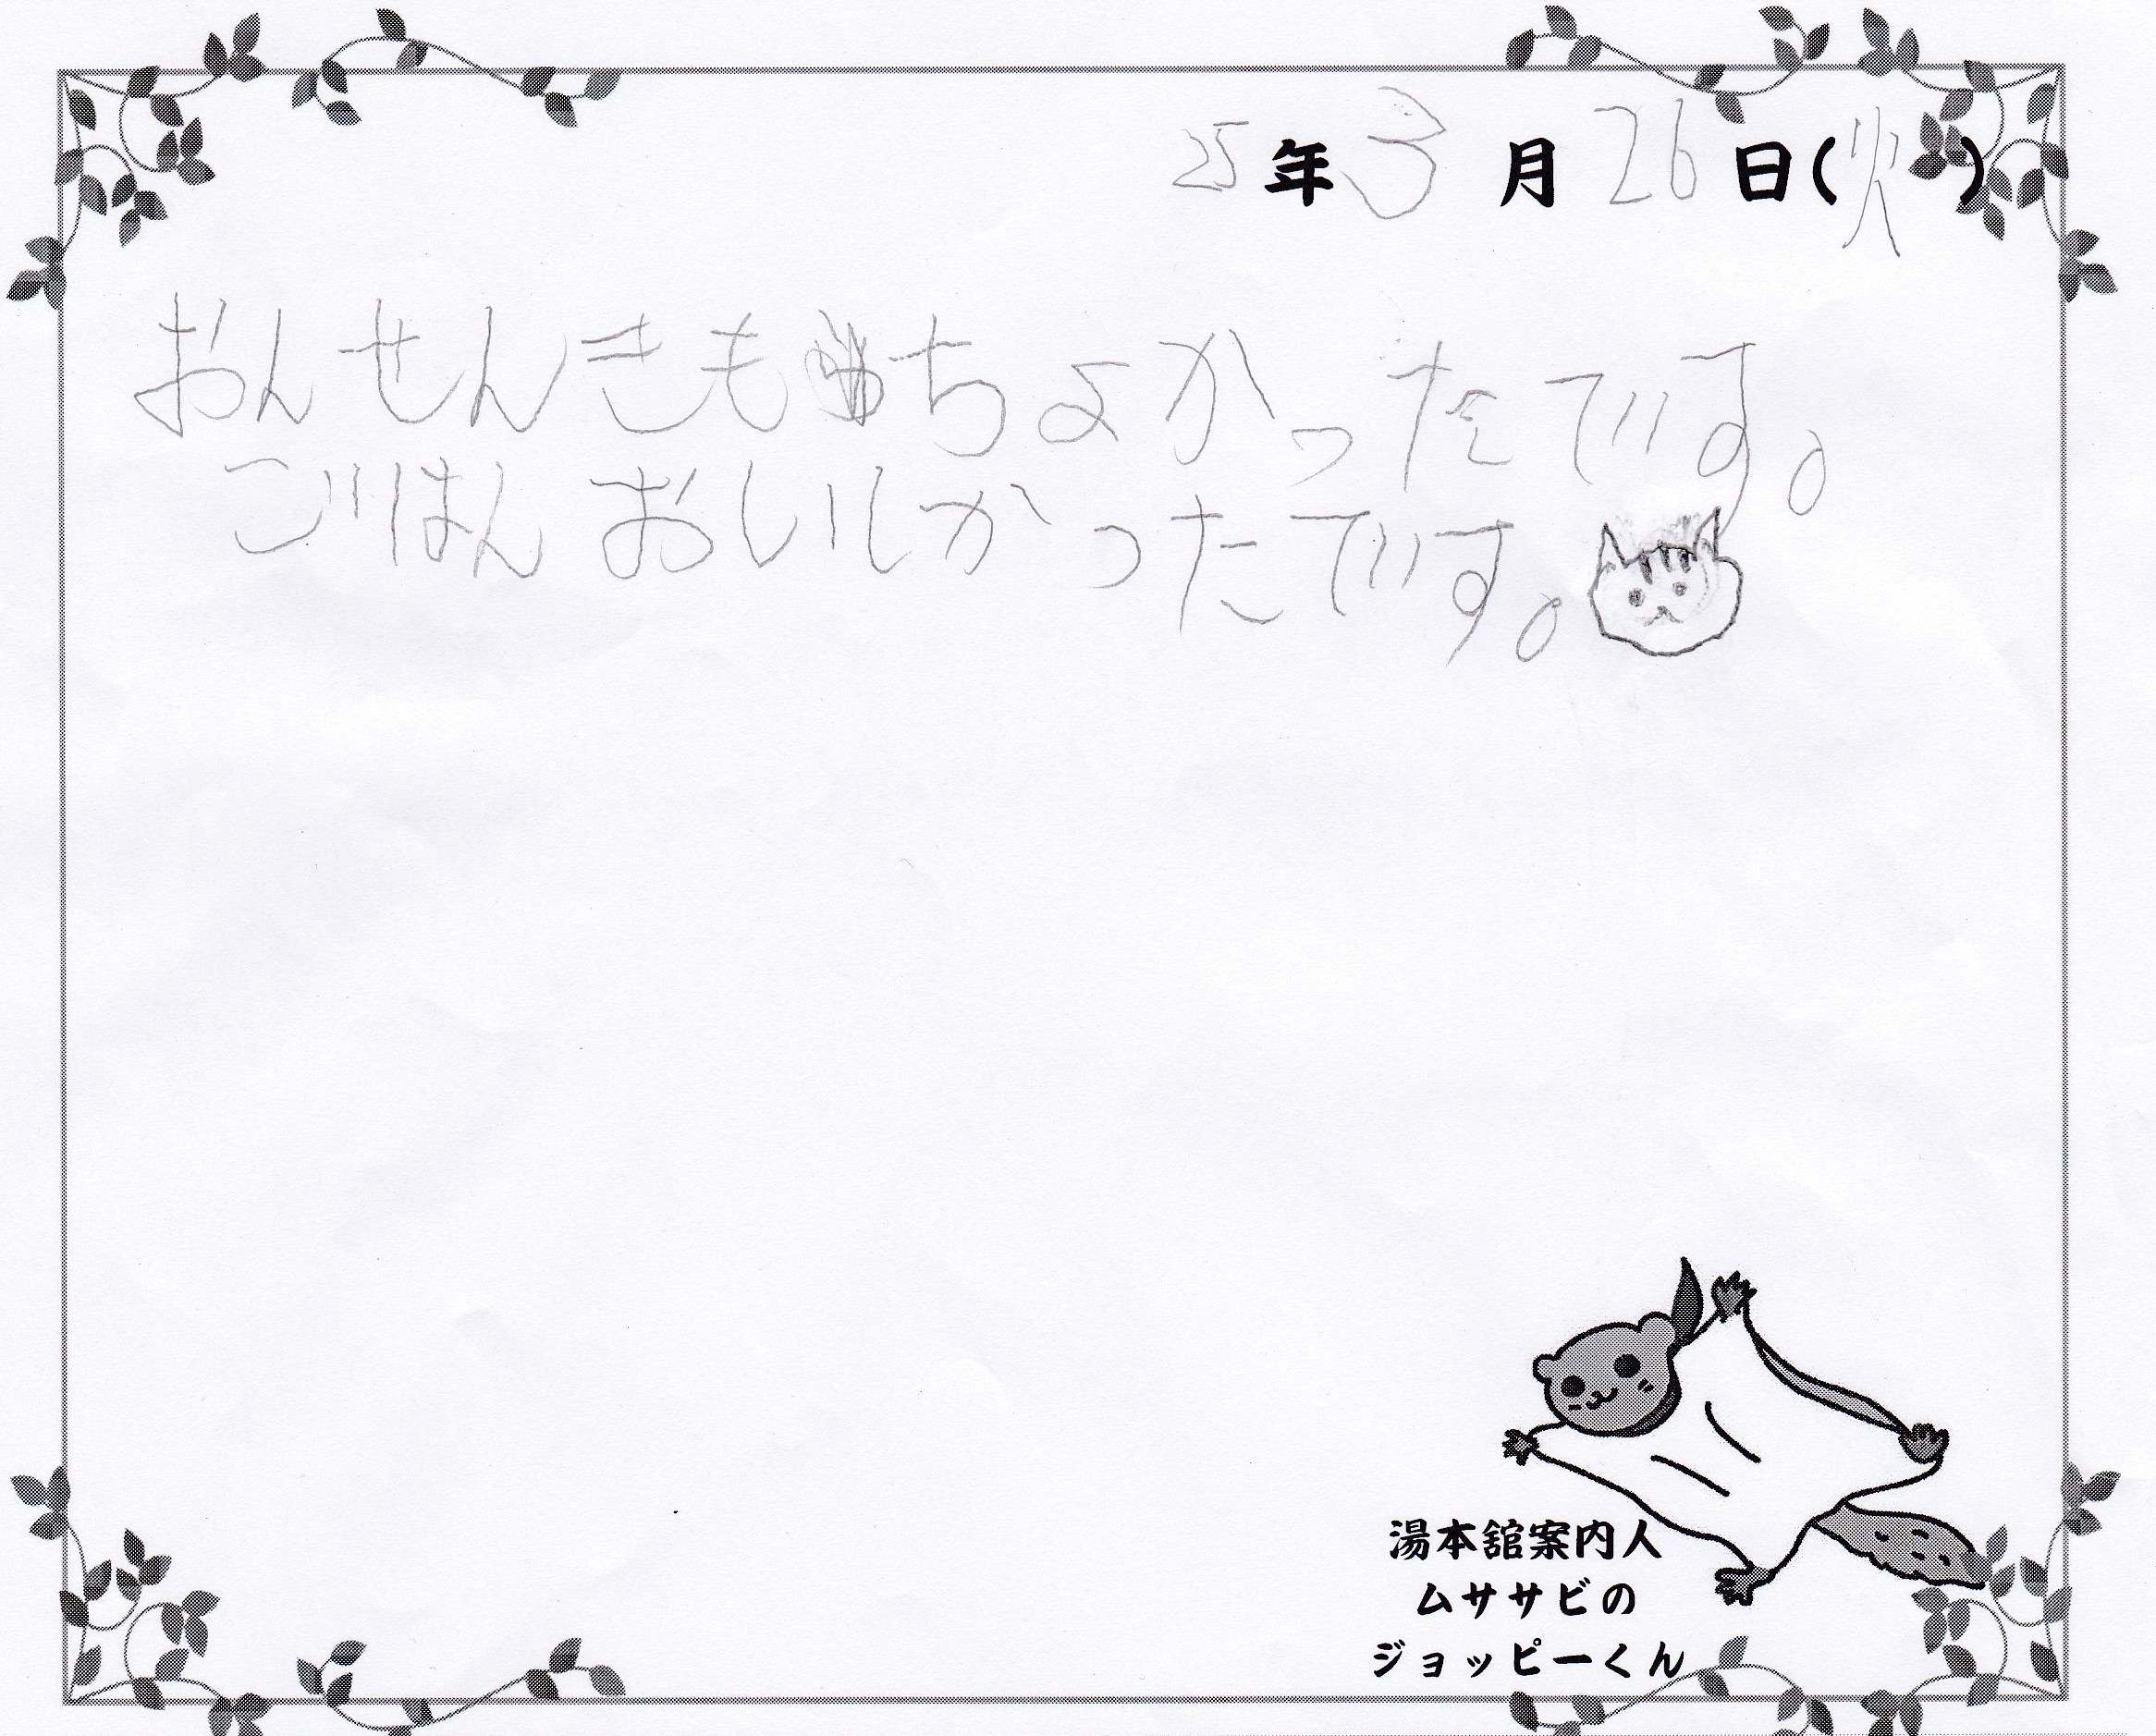 25年3月26日(火)
おんせんきもちよかったです。
ごはんおいしかったです。
湯本舘案内人
ムササビの
ジョッピーくん